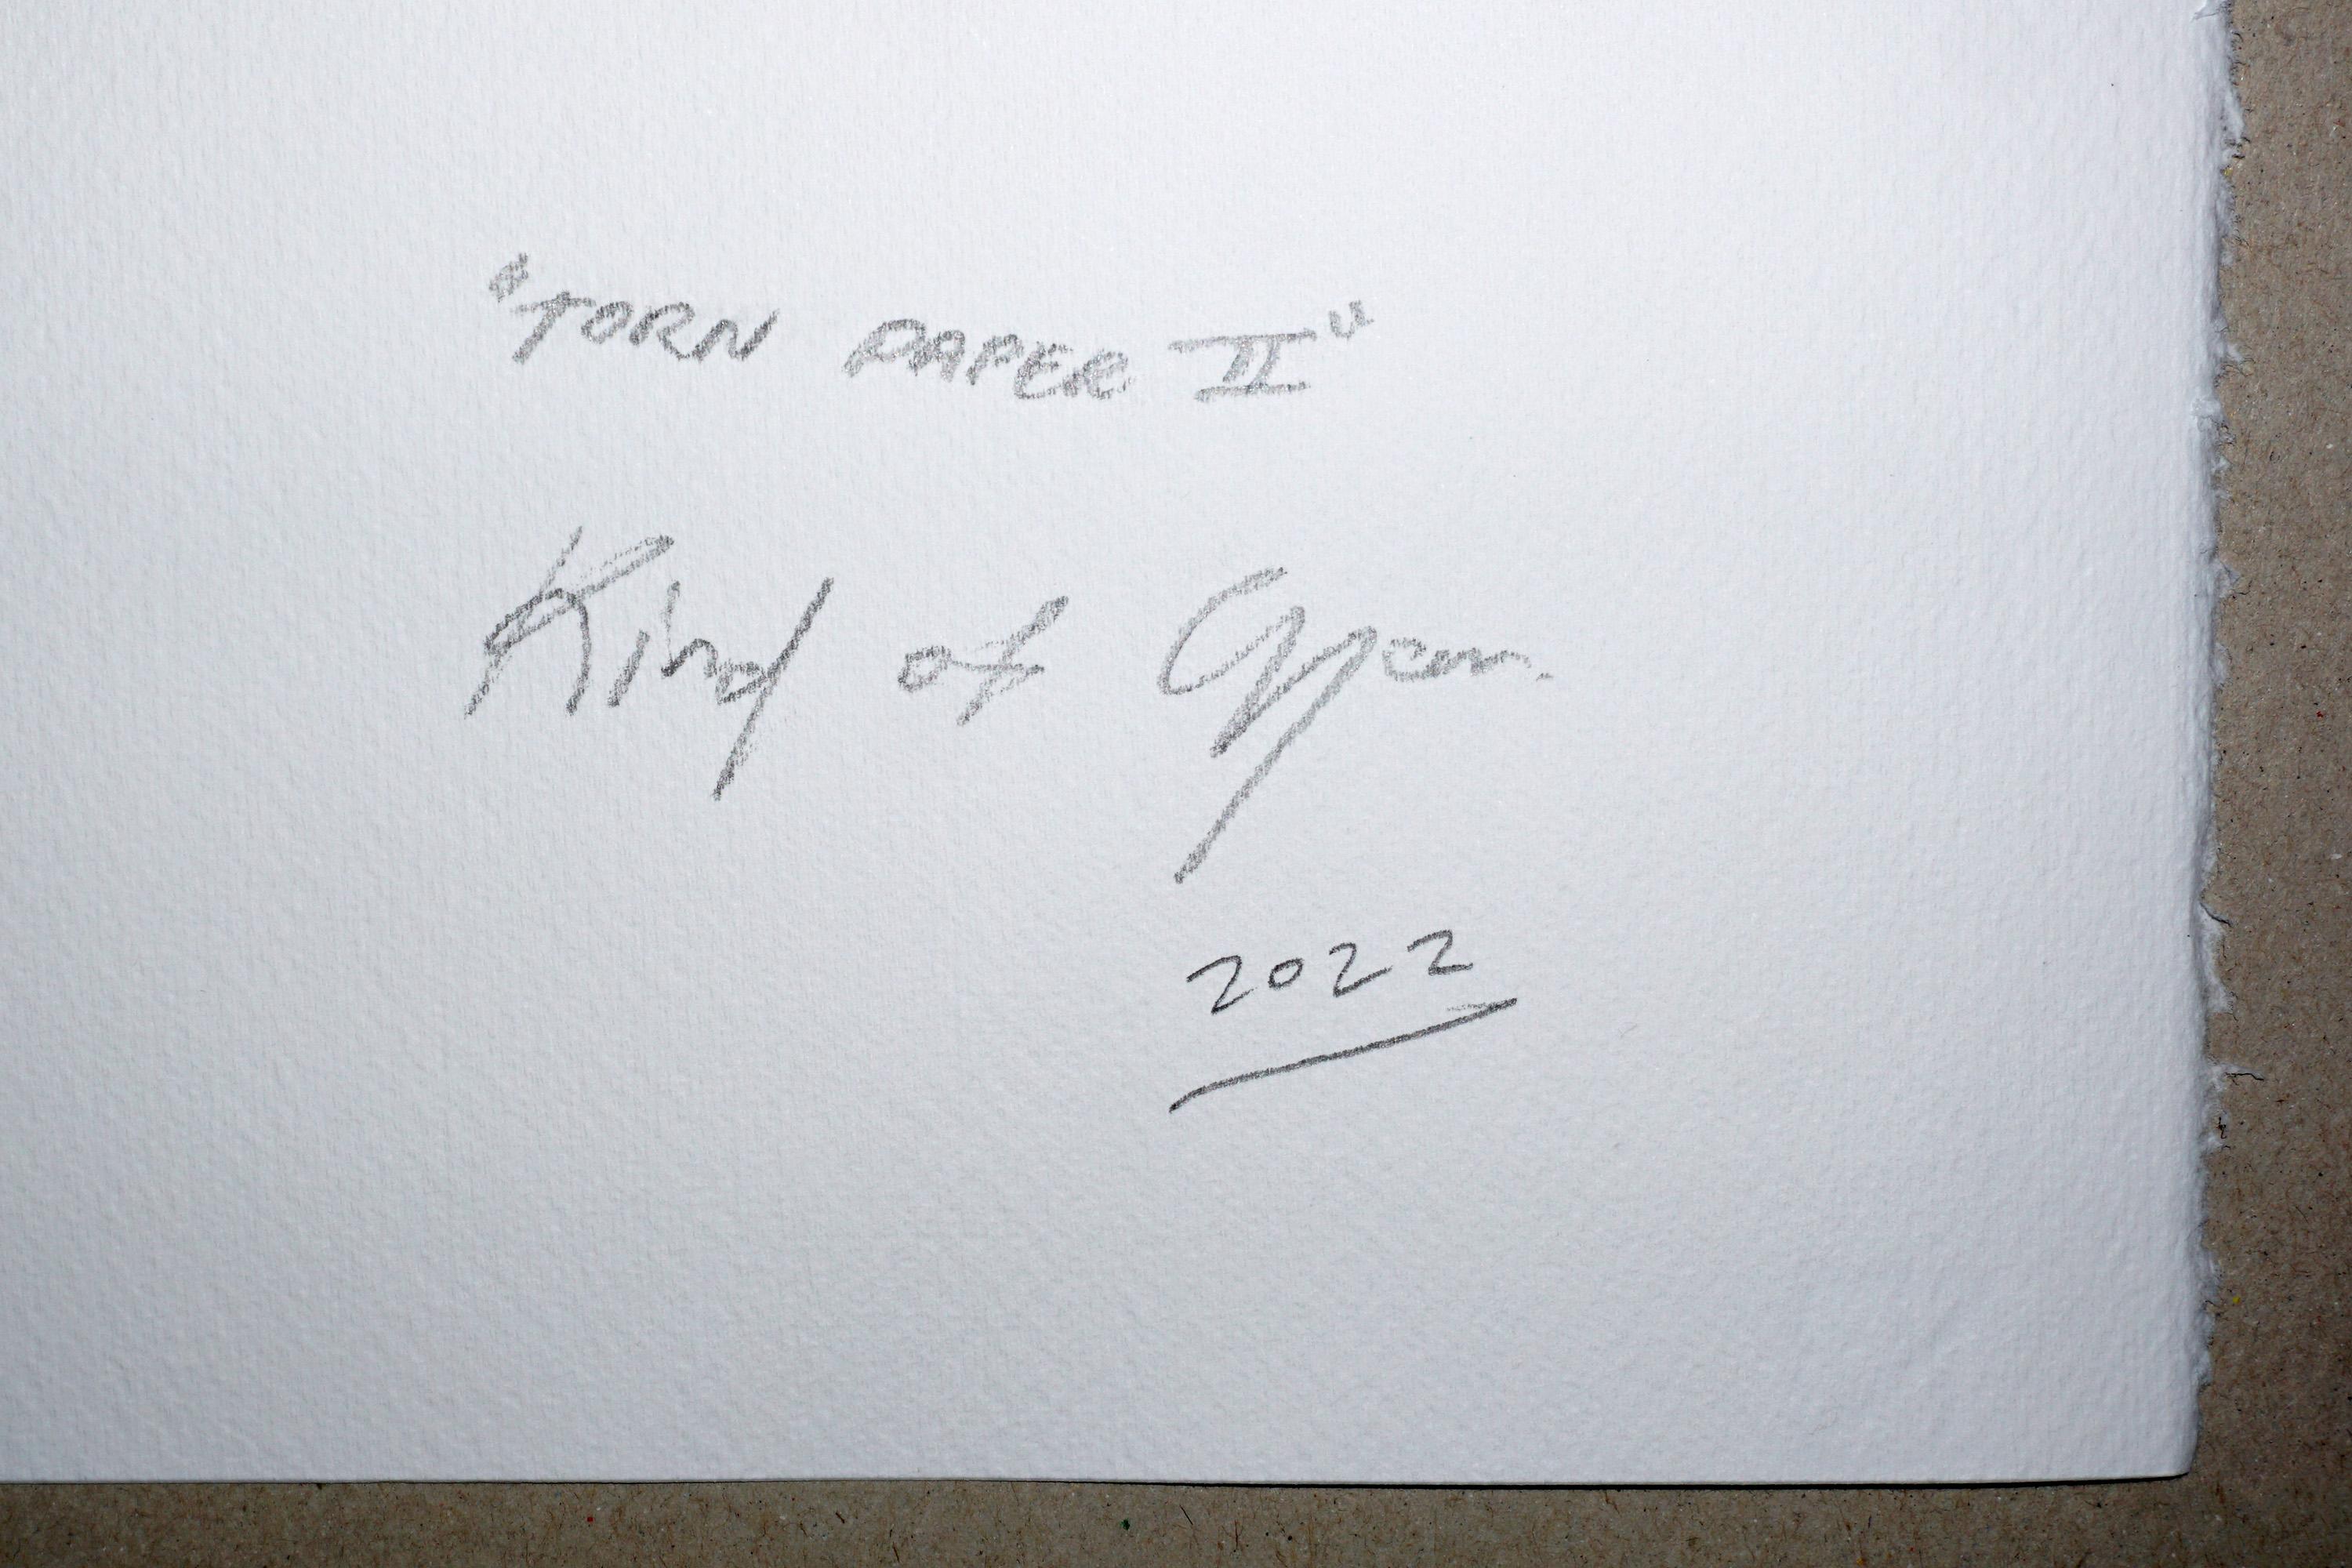 "TORN PAPER II"
Kind of
2022